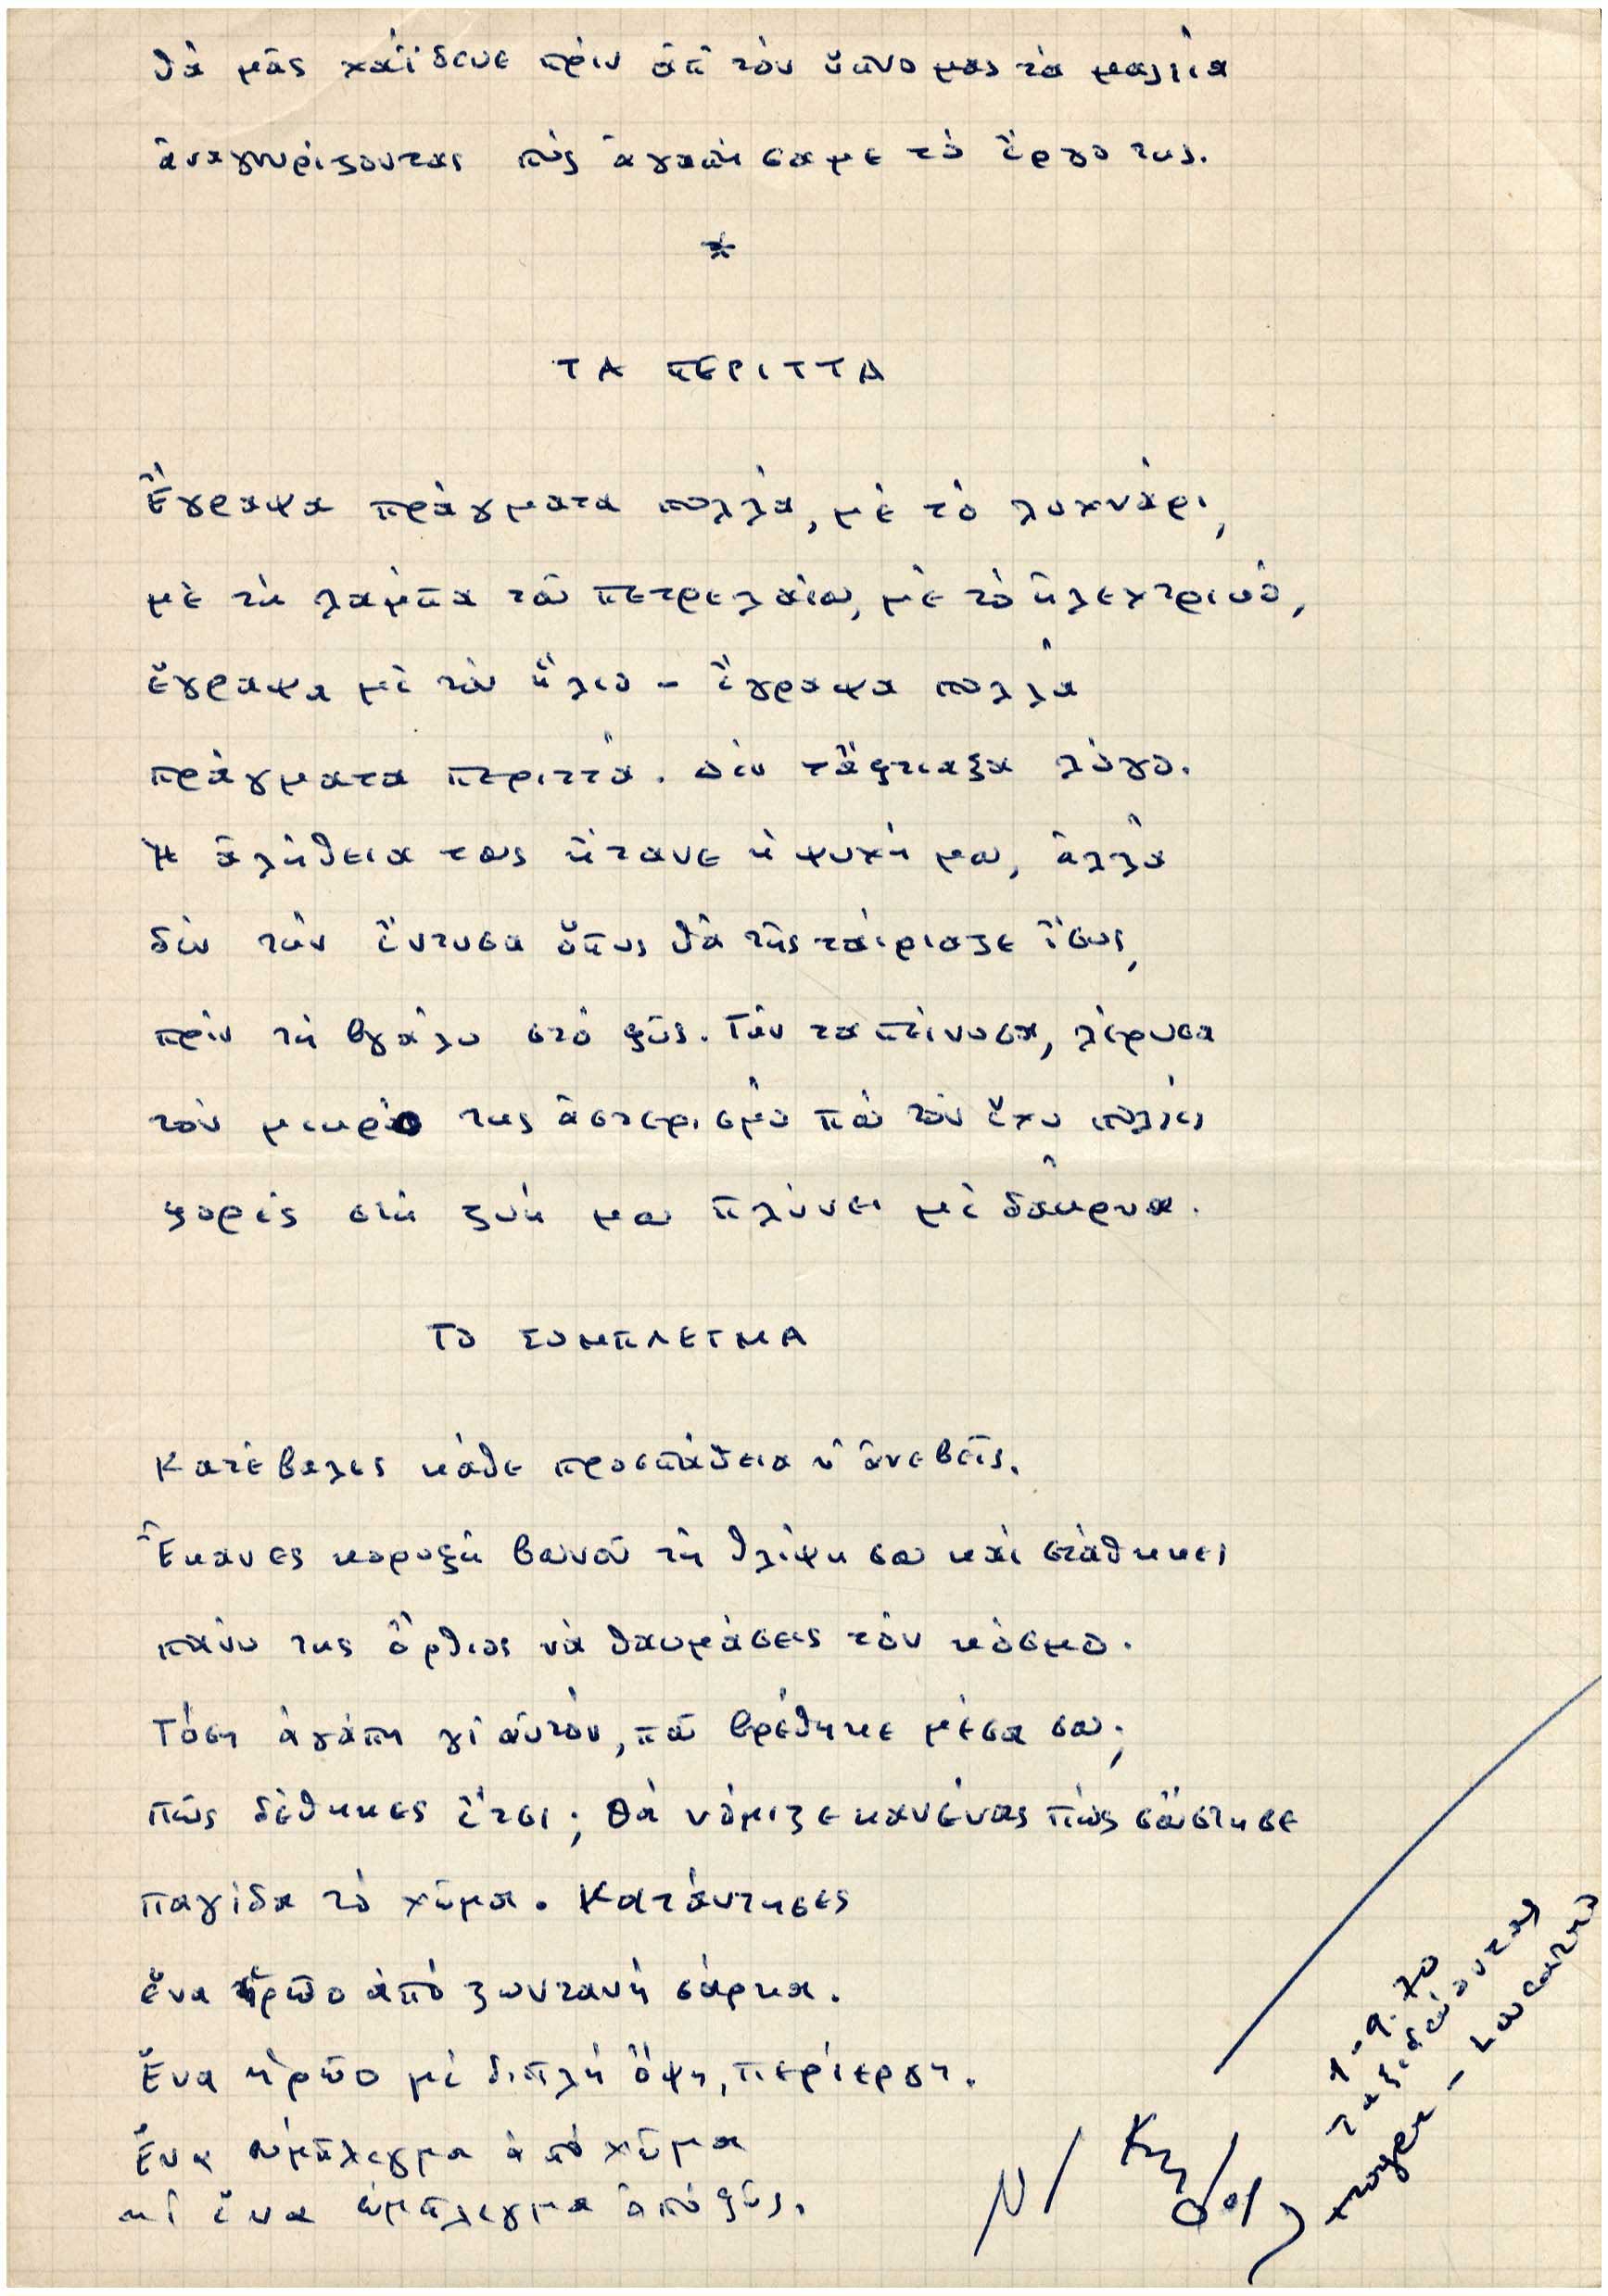 θὰ μᾶς χαΐδευε πρὶν ἀπ' τὸν ὕπνο μας τὰ μαλλιὰ
ἀναγνωρίζοντας πὼς ἀγαπήσαμε τὸ ἔργο της.
*
ΤΑ ΠΕΡΙΤΤΑ
Ἔγραψα πράγματα πολλά, μὲ τὸ λυχνάρι,
μὲ τὴ λάμπα τοῦ πετρελαίου, μὲ τὸ ἠλεκτρικό,
ἔγραψα μὲ τὸν ἥλιο - ἔγραψα πολλὰ
πράγματα περιττά. Δὲν τἄφτιαξα λόγο.
Ἡ ἀλήθεια τους ἤτανε ἡ ψυχή μου, ἀλλὰ
δὲν τὴν ἔντυσα ὅπως θὰ τῆς ταίριαζε ἴσως,
πρὶν τὴ βγάλω στὸ φῶς. Τὴν ταπείνωσα, λέρωσα
τὸν μικρό της ἀστερισμὸ ποὺ τὸν ἔχω πολλὲς
φορὲς στὴ ζωή μου πλύνει μὲ δάκρυα.
ΤΟ ΣΥΜΠΛΕΓΜΑ
Κατέβαλες κάθε προσπάθεια ν' ἀνεβεῖς.
Ἔκανες κορυφὴ βουνοῦ τὴ θλίψη σου καὶ στάθηκες
πάνω της ὄρθιος νὰ θαυμάσεις τὸν κόσμο.
Τόση ἀγάπη γι' αὐτόν, ποῦ βρέθηκε μέσα σου;
Πῶς δέθηκες ἔτσι; Θὰ νόμιζε κανένας πὼς σοὔστησε
παγίδα τὸ χῶμα. Κατάντησες
ἕνα ἡρῶο ἀπὸ ζωντανὴ σάρκα.
Ἕνα ἡρῶο μὲ διπλὴ ὄψη, περίεργη.
Ἕνα σύμπλεγμα ἀπὸ χῶμα
κι ἕνα σύμπλεγμα ἀπὸ φῶς.
1-9.70
ταξιδεύοντας